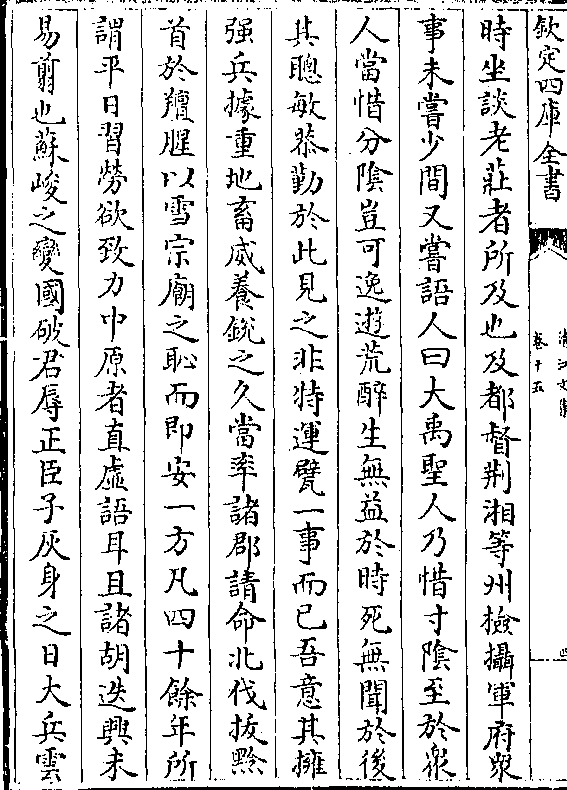 欽定四庫全書
卷十五
時坐談老莊者所及也及都督荆湘等州檢攝軍府衆
事未嘗少間又嘗語人曰大禹聖人乃惜寸陰至於衆
人當惜分陰豈可逸遊荒醉生無益於時死無聞於後
其聰敏恭勤於此見之非特運甓一事而已吾意其擁
强兵據重地畜威養銳之久當率諸郡請命北伐拔黔
首於羶腥以雪宗廟之恥而即安一方凡四十餘年所
謂平日習勞欲致力中原者直虛語耳且諸胡迭興未
易翦也蘇峻之變國破君辱正臣子灰身之日大兵雲